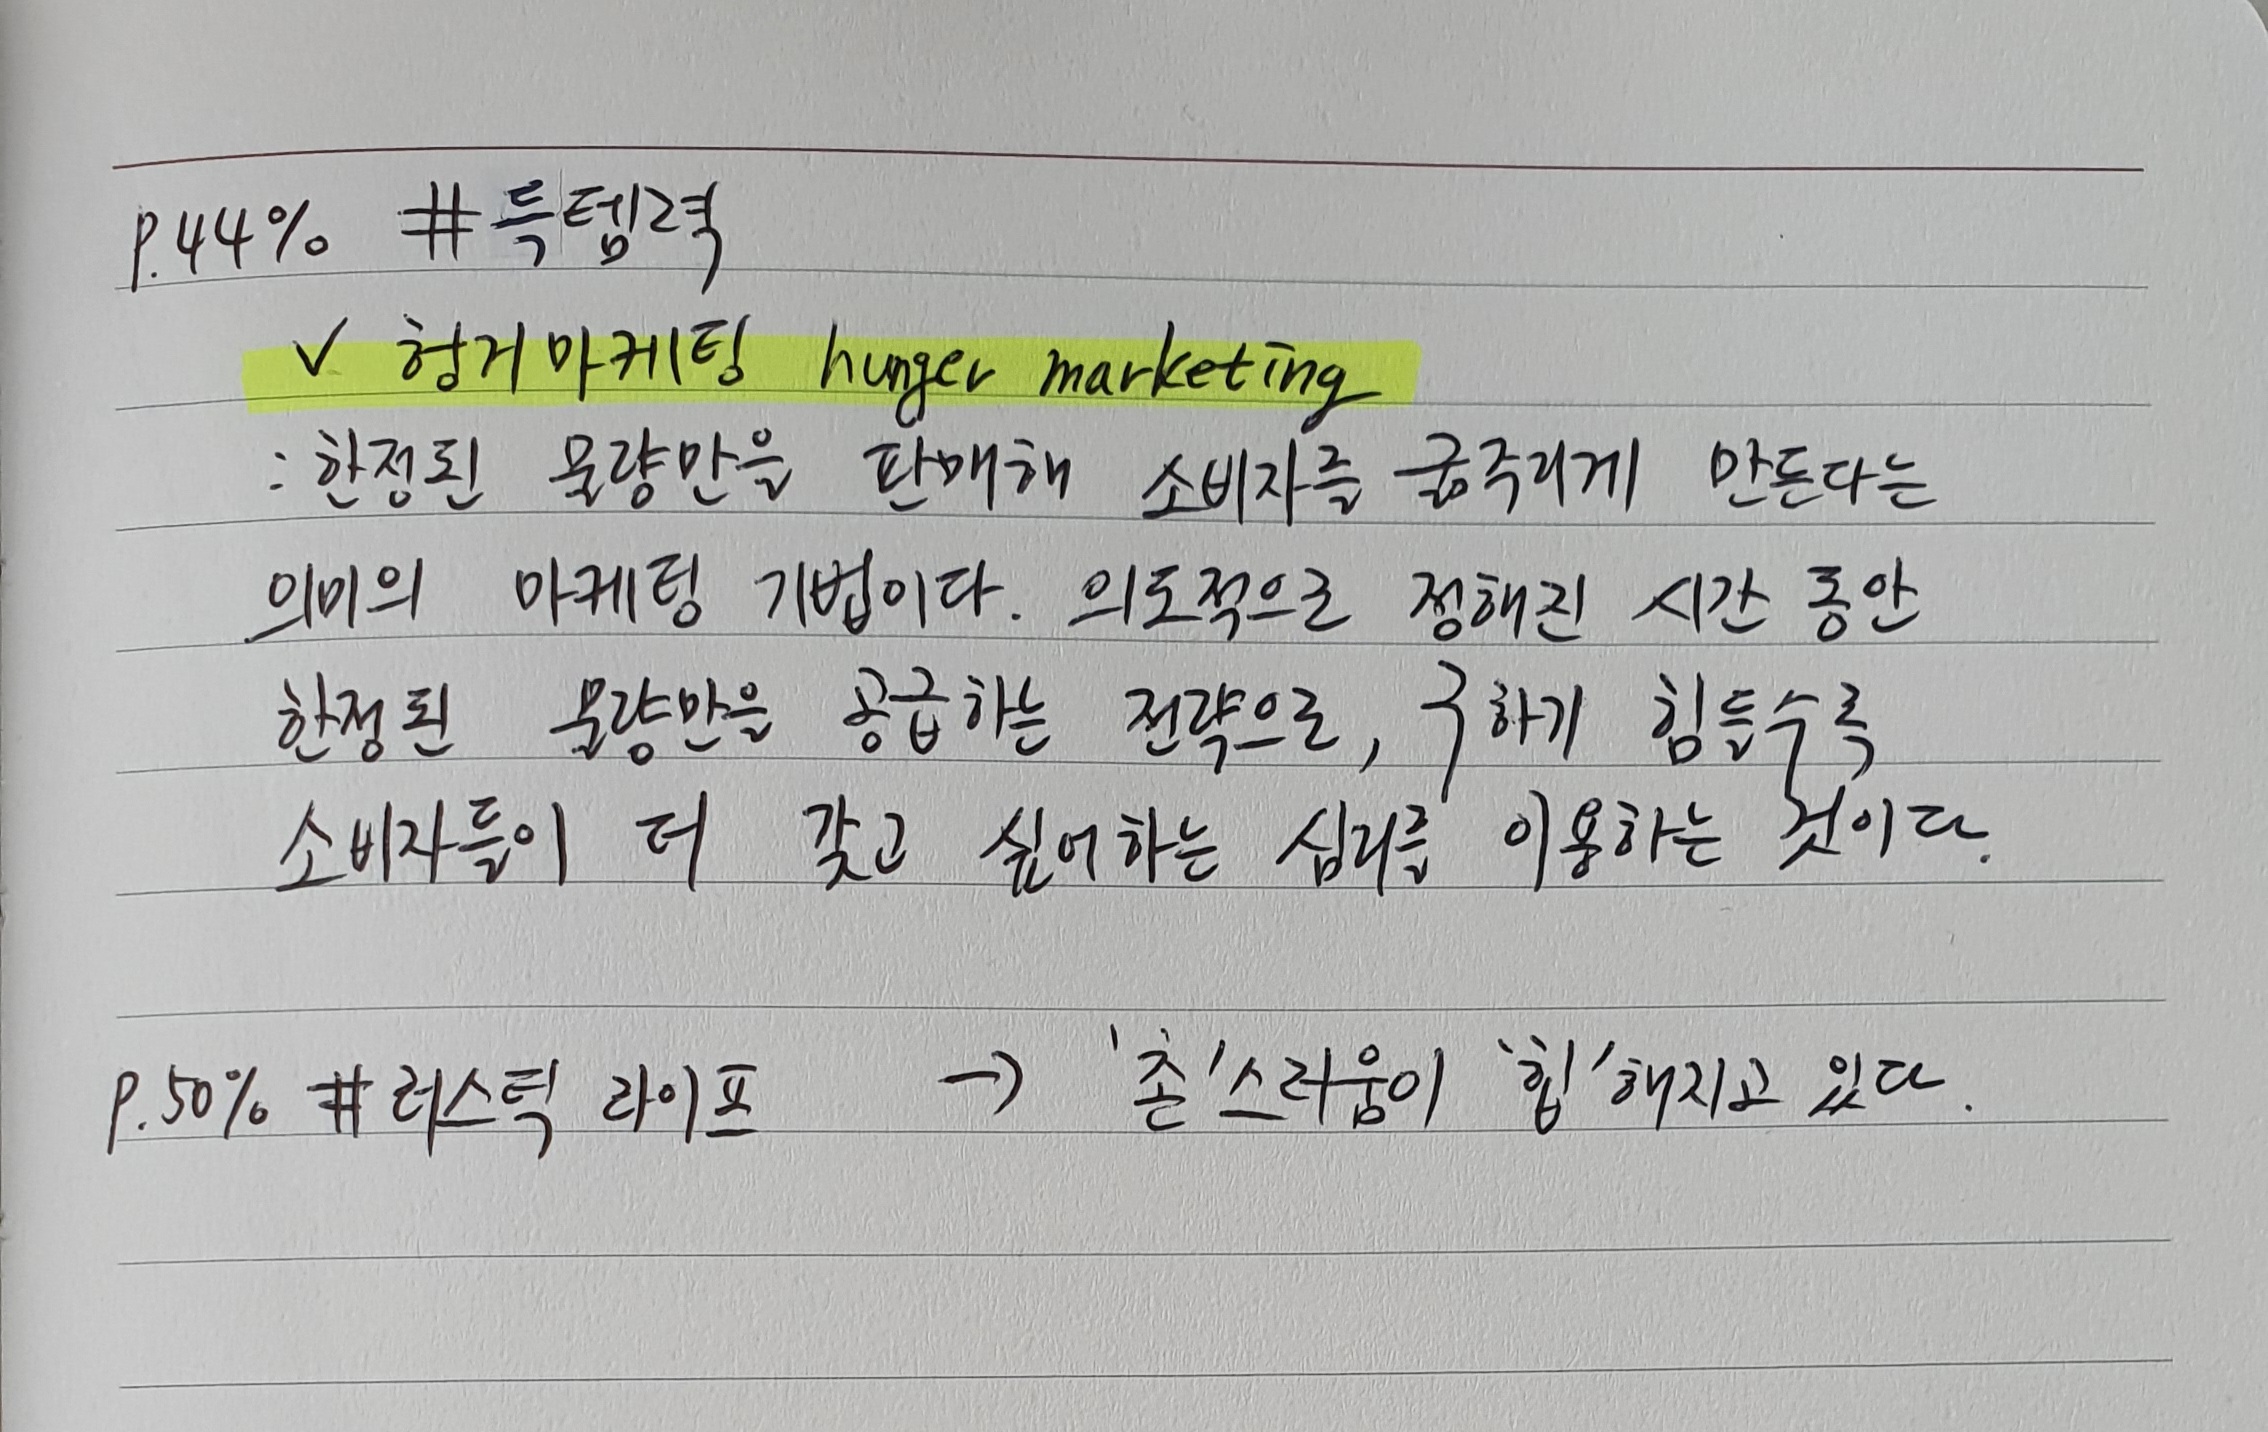 p.44% #득템력
✓ 헝거마케팅 hunger marketing
: 한정된 물량만을 판매해 소비자를 굶주리게 만든다는
의미의 마케팅 기법이다. 의도적으로 정해진 시간 동안
한정된 물량만을 공급하는 전략으로, 구하기 힘들수록
소비자들이 더 갖고 싶어하는 심리를 이용하는 것이다.
p.50% #러스틱 라이프 → '촌'스러움이 '힙'해지고 있다.